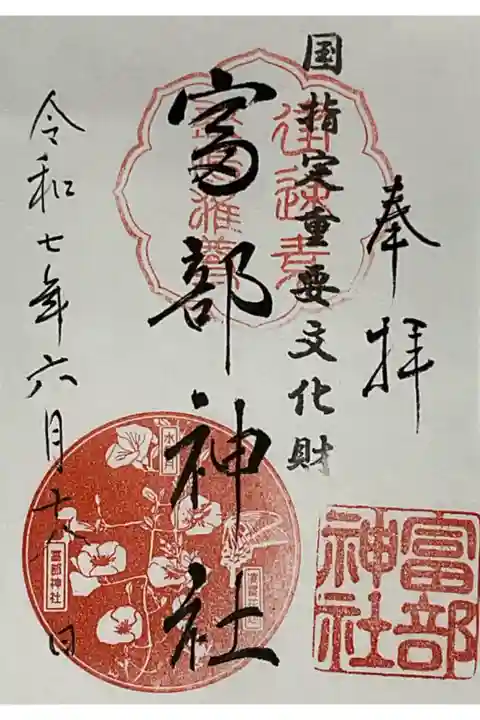 奉拝
国指定重要文化財
富部神社
令和七年六月十八日
富部神社
水無月
富部神社